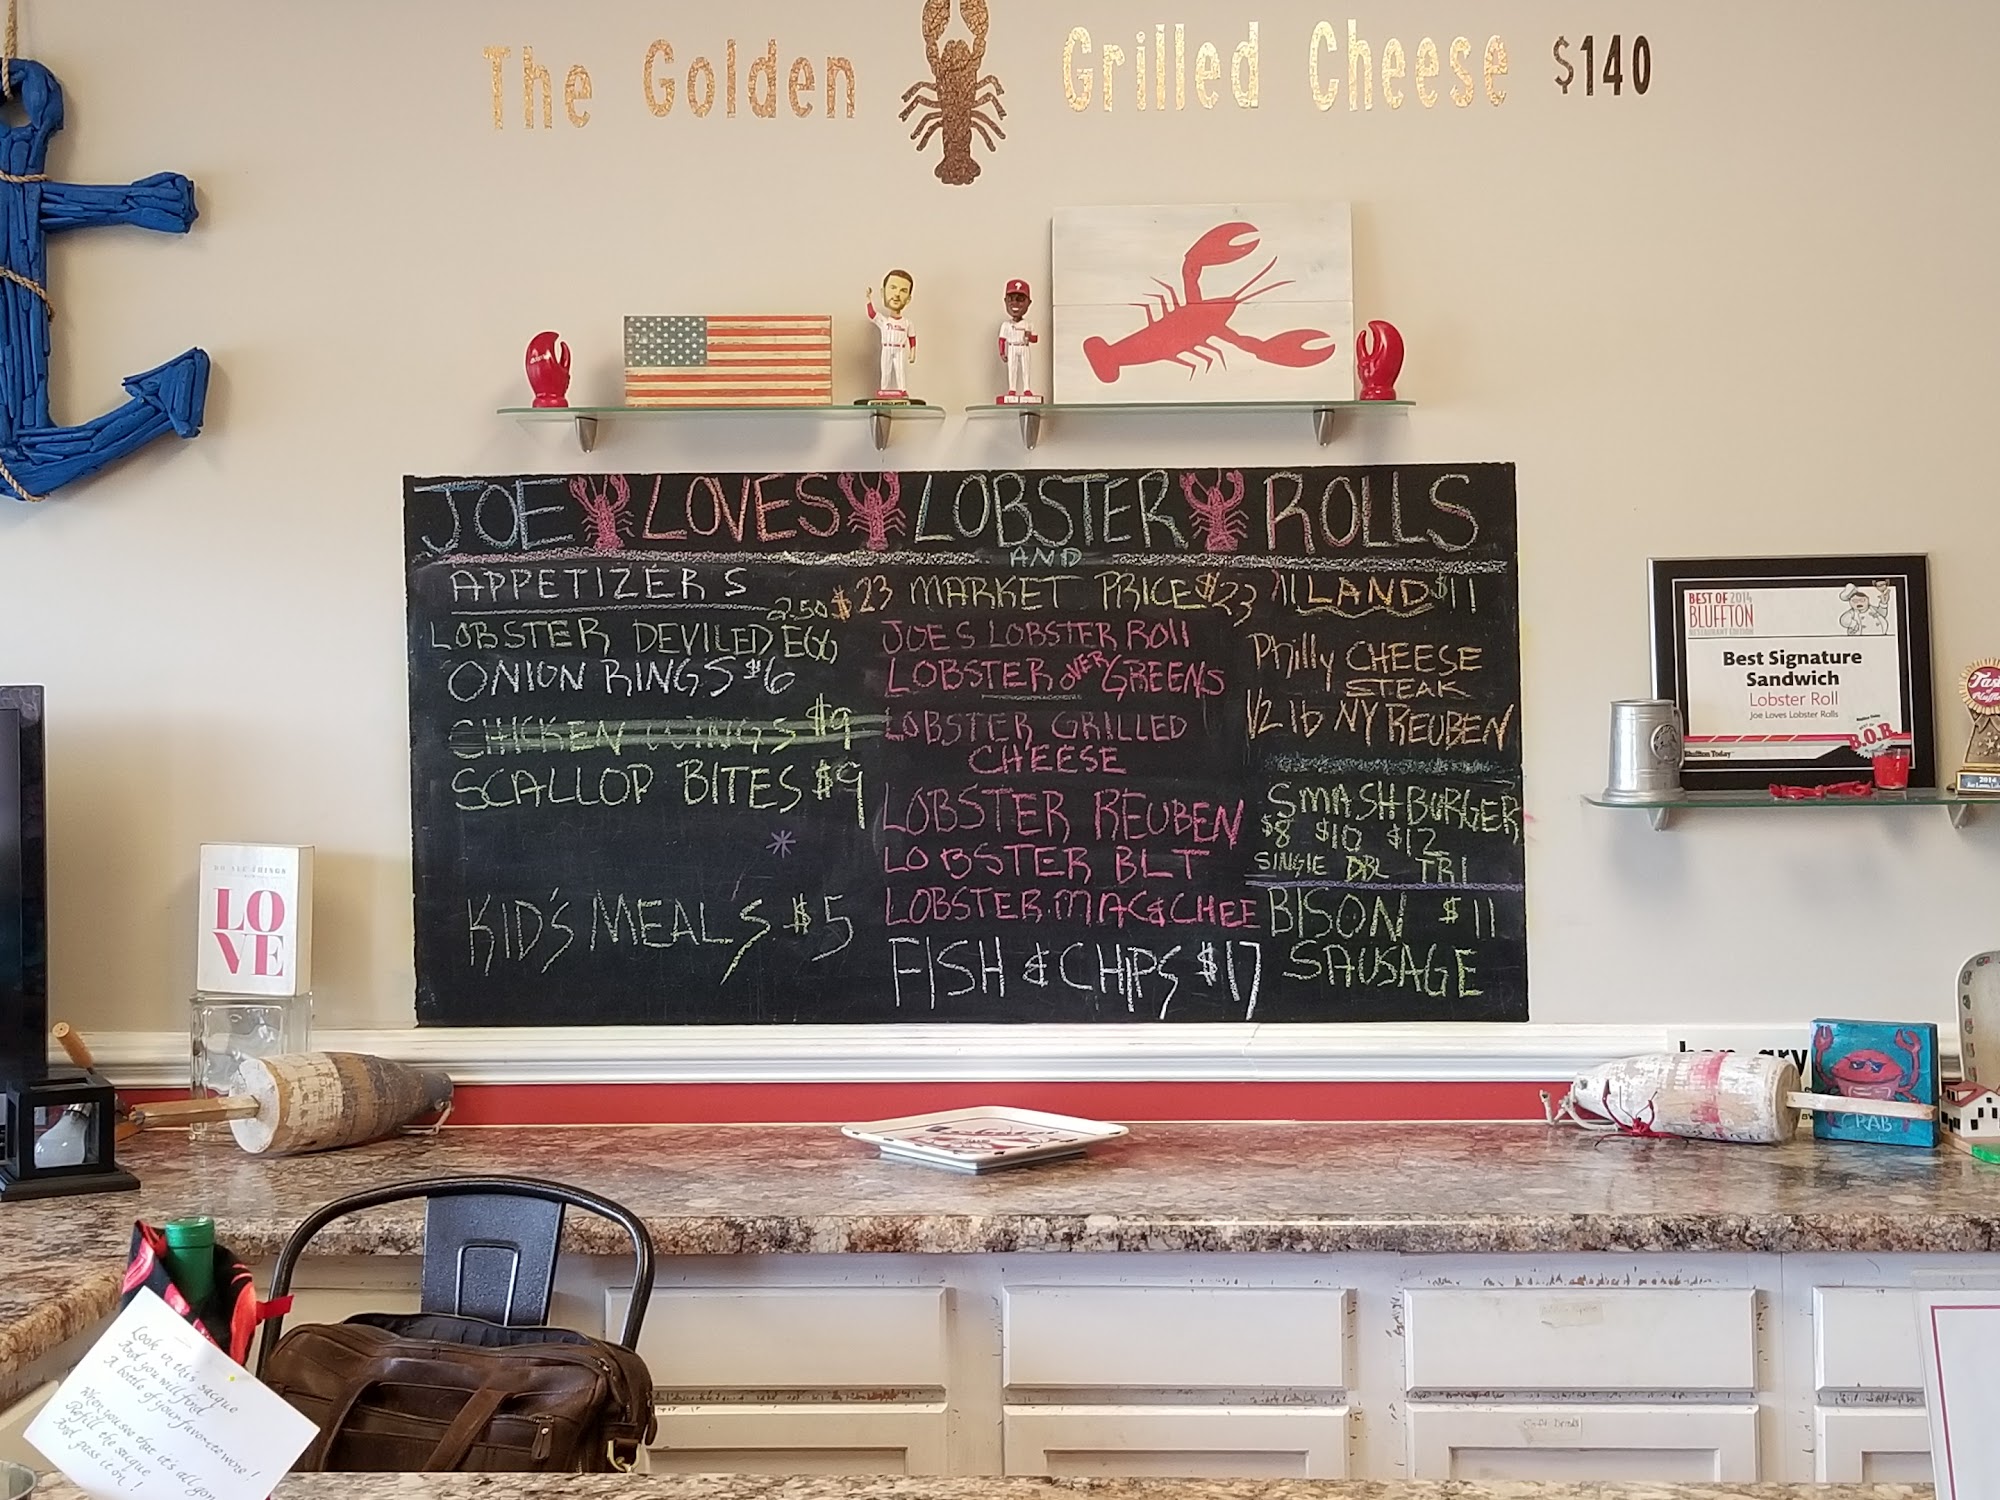 The Golden Grilled Cheese $140
JOE LOVES LOBSTER ROLLS
AND
APPETIZERS
2.50 $23
LOBSTER DEVILED EGG
ONION RINGS $6
CHICKEN WINGS $9
SCALLOP BITES $9
*
KID'S MEALS $5
MARKET PRICE $23
JOES LOBSTER Roll
LOBSTER OVER GREENS
LOBSTER GRILLED
CHEESE
LOBSTER REUBEN
LOBSTER BLT
LOBSTER MAC & CHEE
FISH & CHIPS $17
LAND $11
Philly CHEESE
STEAK
1/2 lb NY REUBEN
SMASHBURGER
$8 $10 $12
SINGLE DBL TRI
BISON $11
SAUSAGE
BEST OF 2014
BLUFFTON
RESTAURANT EDITION
Best Signature
Sandwich
Lobster Roll
Joe Loves Lobster Rolls
Bluffton Today
B.O.B.
2014
DO ALL THINGS
LO
VE
CRAB
Look in this sacque
And you will find
A bottle of your favorite wine!
When you see that it's all gon
Refill the sacque
And pass it on!